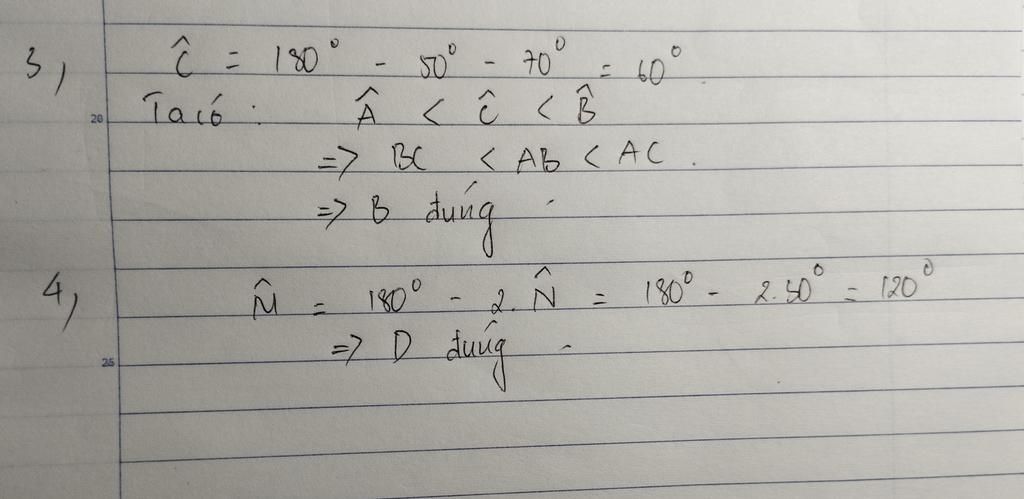 3, Ĉ = 180° - 50° - 70° = 60°.
20 Ta có : Â < Ĉ < B̂
=> BC < AB < AC .
=> B đúng .
4, M̂ = 180° - 2. N̂ = 180° - 2.30° = 120°
25 => D đúng .